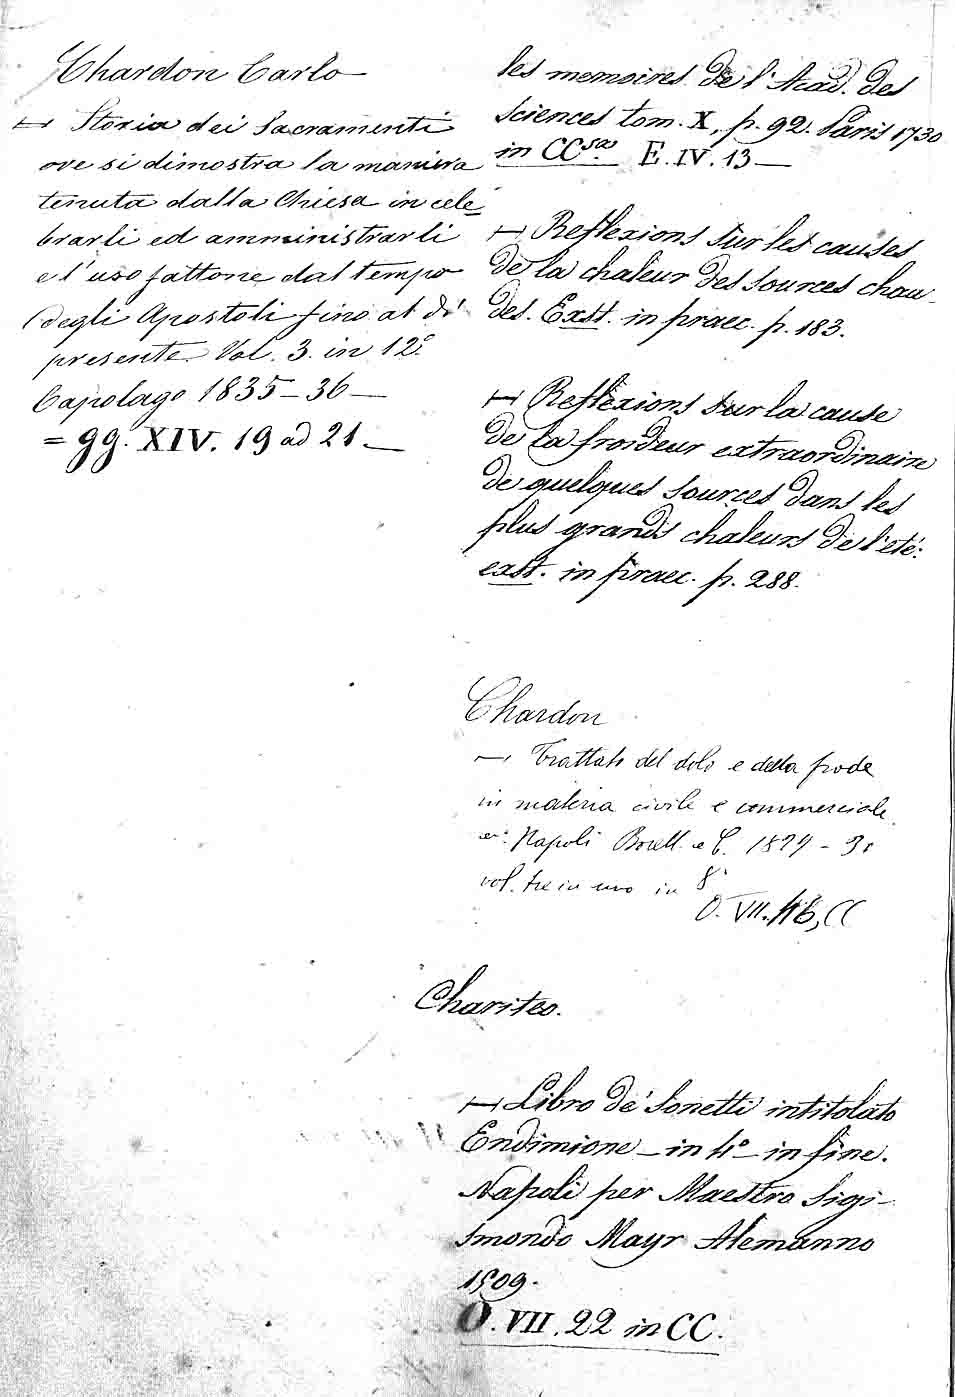 Chardon Carlo
⊢ Storia dei Sacramenti
ove si dimostra la maniera
tenuta dalla Chiesa in cele=
brarli ed amministrarli
e l'uso fattone dal tempo
degli Apostoli fino al dì
presente. Vol. 3. in 12.°
Capolago 1835-36 —
= gg. XIV. 19 ad 21. —
les memoires de l'Acad. des
sciences tom. X, p. 92. Paris 1730
in CC E. IV. 13 —
⊢ Reflexions sur les causes
de la chaleur des sources chau-
des. Exst. in praec. p. 183.
⊢ Reflexions sur la cause
de la froideur extraordinaire
de quelques sources dans les
plus grands chaleurs de l'eté:
exst. in praec. p. 288.
Chardon
— Trattato del dolo e della frode
in materia civile e commerciale
Napoli Borell. e C. 1829 - 30
vol. tre in uno in 8°
O. VII. 46, CC
Chariteo.
⊢ Libro de' Sonetti intitolato
Endimione — in 4° — in fine.
Napoli per Maestro Sigi-
smondo Mayr Alemanno
1509.
O. VII. 22 in CC.